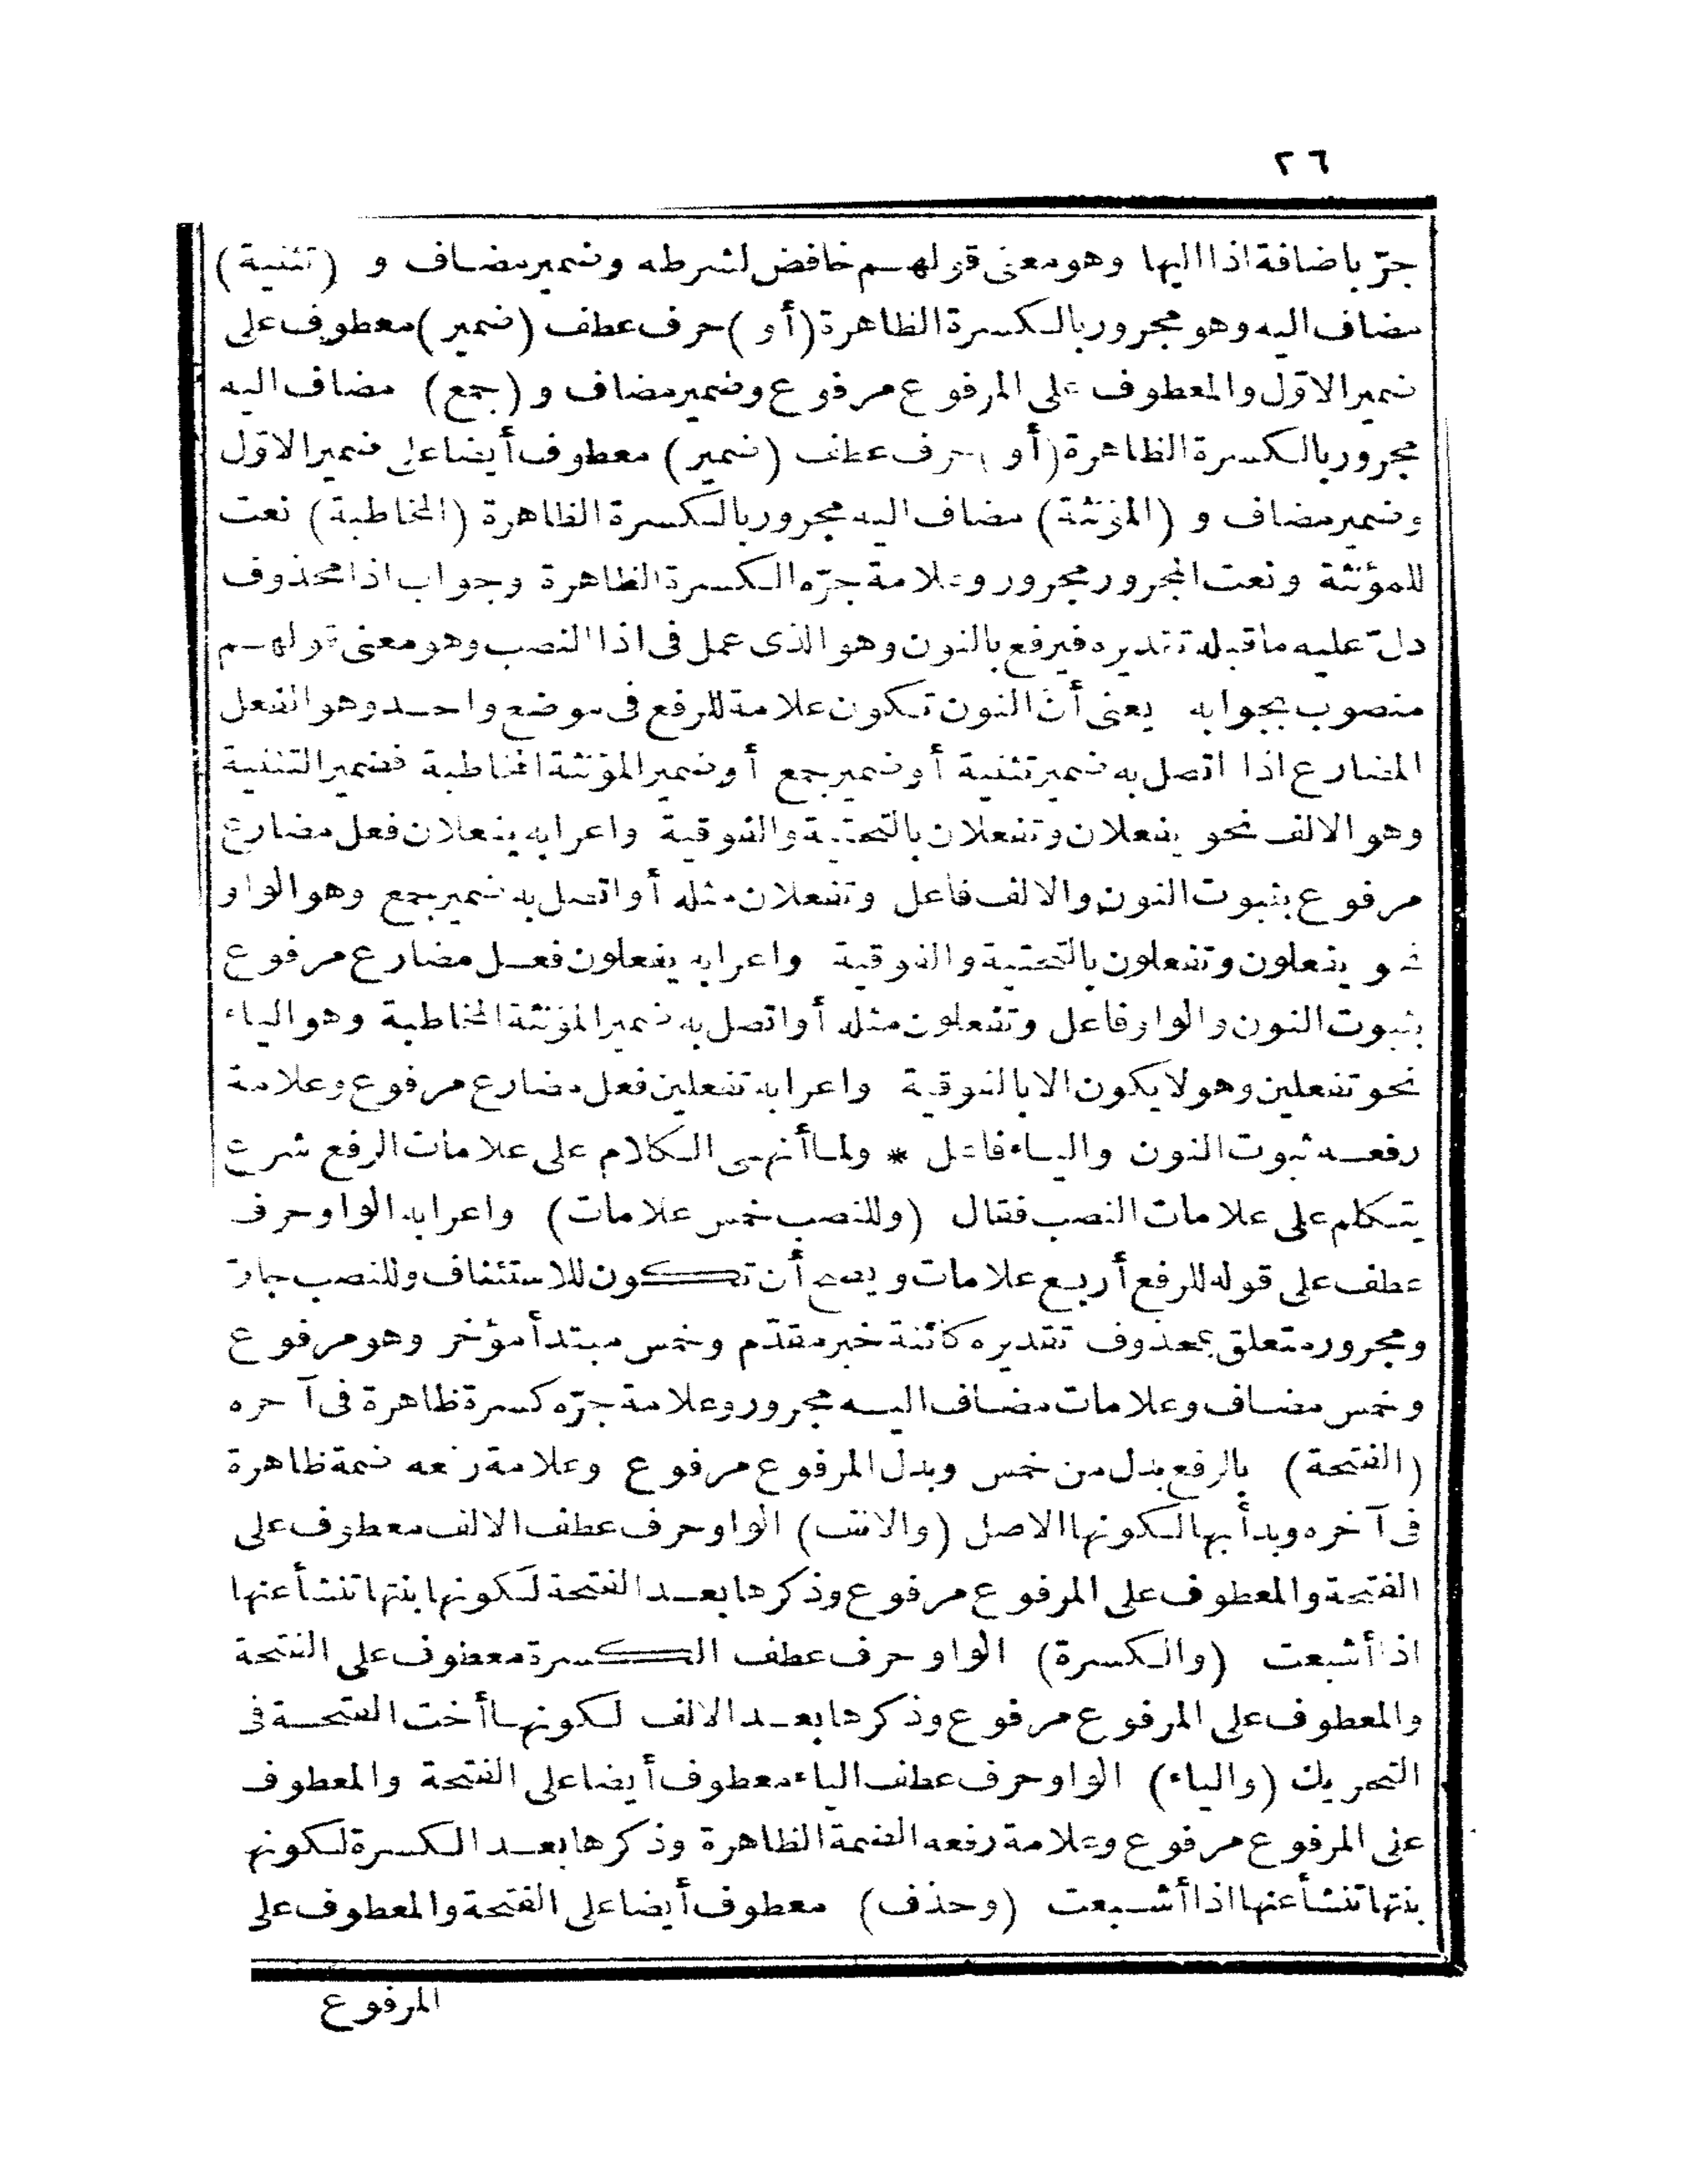 ٢٦
جرّ باضافة اذا اليها وهو معنى قولهم خافض لشرطه وضمير مضاف و (تثنية)
مضاف اليه وهو مجرور بالكسرة الظاهرة (أو) حرف عطف (ضمير) معطوف على
ضمير الاوّل والمعطوف على المرفوع مرفوع وضمير مضاف و (جمع) مضاف اليه
مجرور بالكسرة الظاهرة (أو) حرف عطف (ضمير) معطوف أيضا على ضمير الاوّل
وضمير مضاف و (المؤنثة) مضاف اليه مجرور بالكسرة الظاهرة (المخاطبة) نعت
للمؤنثة ونعت المجرور مجرور وعلامة جرّه الكسرة الظاهرة وجواب اذا محذوف
دلّ عليه ماقبله تقديره فيرفع بالنون وهو الذى عمل فى اذا النصب وهو معنى قولهم
منصوب بجوابه يعنى أنّ النون تكون علامة للرفع فى موضع واحد وهو الفعل
المضارع اذا اتصل به ضمير تثنية أو ضمير جمع أو ضمير المؤنثة المخاطبة فضمير التثنية
وهو الالف نحو يفعلان وتفعلان بالتحتية والفوقية واعرابه يفعلان فعل مضارع
مرفوع بثبوت النون والالف فاعل وتفعلان مثله أو اتصل به ضمير جمع وهو الواو
نحو يفعلون وتفعلون بالتحتية والفوقية واعرابه يفعلون فعل مضارع مرفوع
بثبوت النون والواو فاعل وتفعلون مثله أو اتصل به ضمير المؤنثة المخاطبة وهو الياء
نحو تفعلين وهو لا يكون الا بالفوقية واعرابه تفعلين فعل مضارع مرفوع وعلامة
رفعه ثبوت النون والياء فاعل * ولما أنهى الكلام على علامات الرفع شرع
يتكلم على علامات النصب فقال (وللنصب خمس علامات) واعرابه الواو حرف
عطف على قوله للرفع أربع علامات ويصح أن تكون للاستئناف وللنصب جارّ
ومجرور متعلق بمحذوف تقديره كائنة خبر مقدّم وخمس مبتدأ مؤخر وهو مرفوع
وخمس مضاف وعلامات مضاف اليه مجرور وعلامة جرّه كسرة ظاهرة فى آخره
(الفتحة) بالرفع بدل من خمس وبدل المرفوع مرفوع وعلامة رفعه ضمة ظاهرة
فى آخره وبدأ بها لكونها الاصل (والالف) الواو حرف عطف الالف معطوف على
الفتحة والمعطوف على المرفوع مرفوع وذكرها بعد الفتحة لكونها بنتها تنشأ عنها
اذا أشبعت (والكسرة) الواو حرف عطف الكسرة معطوف على الفتحة
والمعطوف على المرفوع مرفوع وذكرها بعد الالف لكونها أخت الفتحة فى
التحريك (والياء) الواو حرف عطف الياء معطوف أيضا على الفتحة والمعطوف
على المرفوع مرفوع وعلامة رفعه الضمة الظاهرة وذكرها بعد الكسرة لكونها
بنتها تنشأ عنها اذا أشبعت (وحذف) معطوف أيضا على الفتحة والمعطوف على
المرفوع